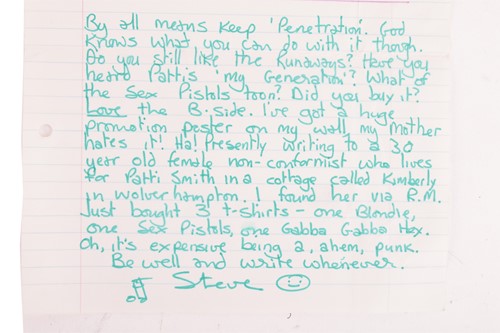 By all means keep 'Penetration'. God
knows what you can do with it though.
Do you still like the Runaways? Have you
heard Patti's 'my Generation'? What of
the Sex Pistols toon? Did you buy it?
Love the B-side. I've got a huge
promotion poster on my wall, my mother
hates it! Ha! Presently writing to a 30
year old female non-conformist who lives
for Patti Smith in a cottage called Kimberly
in Wolverhampton. I found her via R.M.
Just bought 3 t-shirts - one Blondie,
one Sex Pistols, one Gabba Gabba Hex.
Oh, it's expensive being a, ahem, punk.
Be well and write whenever.
Steve